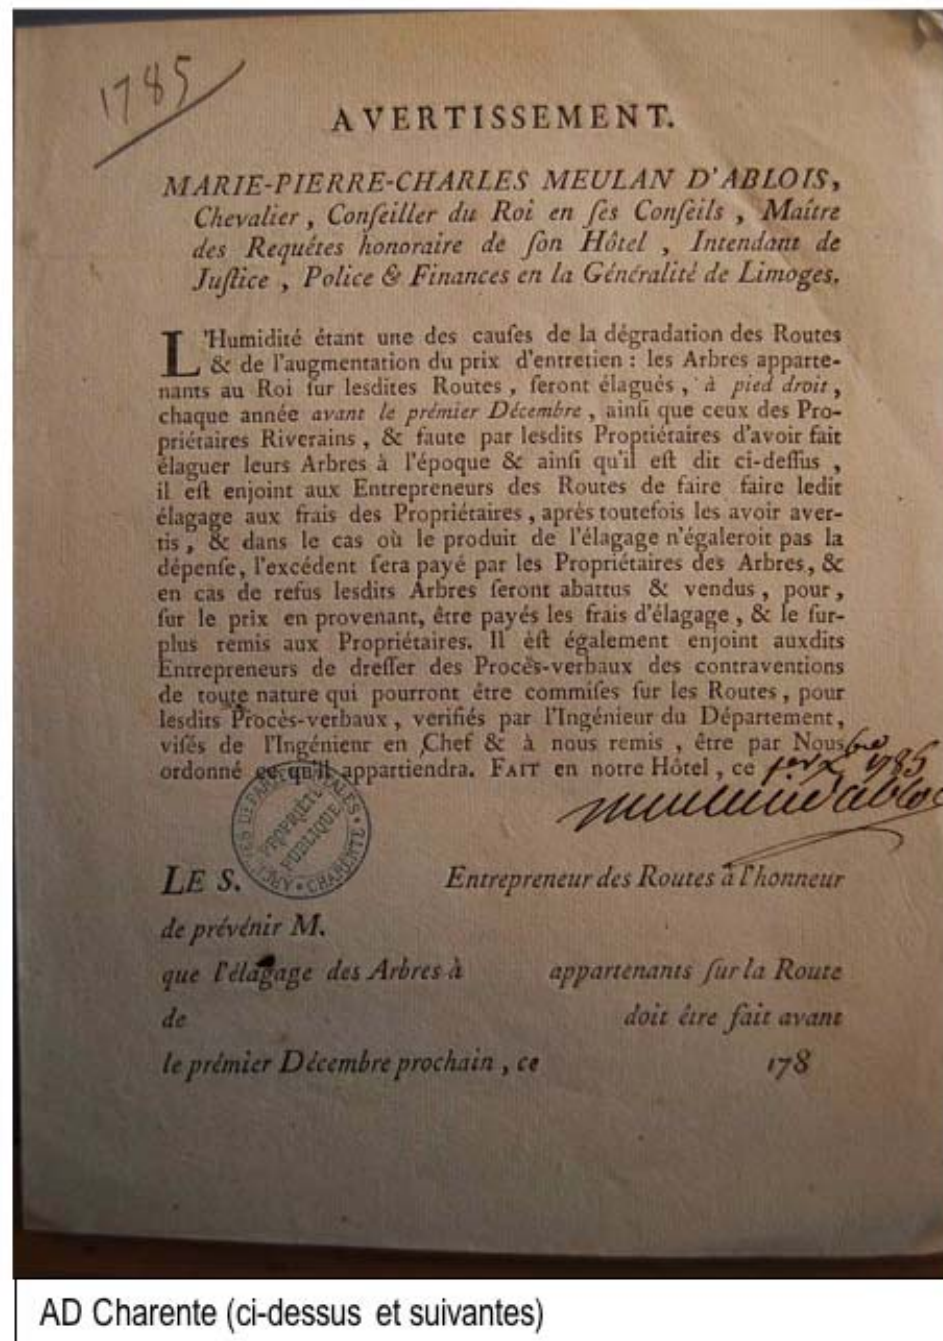 1785
AVERTISSEMENT.
MARIE-PIERRE-CHARLES MEULAN D'ABLOIS,
Chevalier, Conſeiller du Roi en ſes Conſeils, Maître
des Requêtes honoraire de ſon Hôtel, Intendant de
Juſtice, Police & Finances en la Généralité de Limoges.
L'Humidité étant une des cauſes de la dégradation des Routes
& de l'augmentation du prix d'entretien : les Arbres apparte-
nants au Roi ſur lesdites Routes, ſeront élagués, à pied droit,
chaque année avant le prémier Décembre, ainſi que ceux des Pro-
priétaires Riverains, & faute par lesdits Proptiétaires d'avoir fait
élaguer leurs Arbres à l'époque & ainſi qu'il eſt dit ci-deſſus,
il eſt enjoint aux Entrepreneurs des Routes de faire faire ledit
élagage aux frais des Propriétaires, après toutefois les avoir aver-
tis, & dans le cas où le produit de l'élagage n'égaleroit pas la
dépenſe, l'excédent ſera payé par les Propriétaires des Arbres, &
en cas de refus lesdits Arbres ſeront abattus & vendus, pour,
ſur le prix en provenant, être payés les frais d'élagage, & le ſur-
plus remis aux Propriétaires. Il èſt également enjoint auxdits
Entrepreneurs de dreſſer des Procès-verbaux des contraventions
de toute nature qui pourront être commiſes ſur les Routes, pour
lesdits Procès-verbaux, verifiés par l'Ingénieur du Département,
viſés de l'Ingénienr en Chef & à nous remis, être par Nous
ordonné ce qu'il appartiendra. FAIT en notre Hôtel, ce 1er Xbre 1785
meulan d'ablois
ARCHIVES DÉPARTEMENTALES
PROPRIÉTÉ
PUBLIQUE
CHARENTE
LE S. Entrepreneur des Routes à l'honneur
de prévénir M.
que l'élagage des Arbres à appartenants ſur la Route
de doit être fait avant
le prémier Décembre prochain, ce 178
AD Charente (ci-dessus et suivantes)